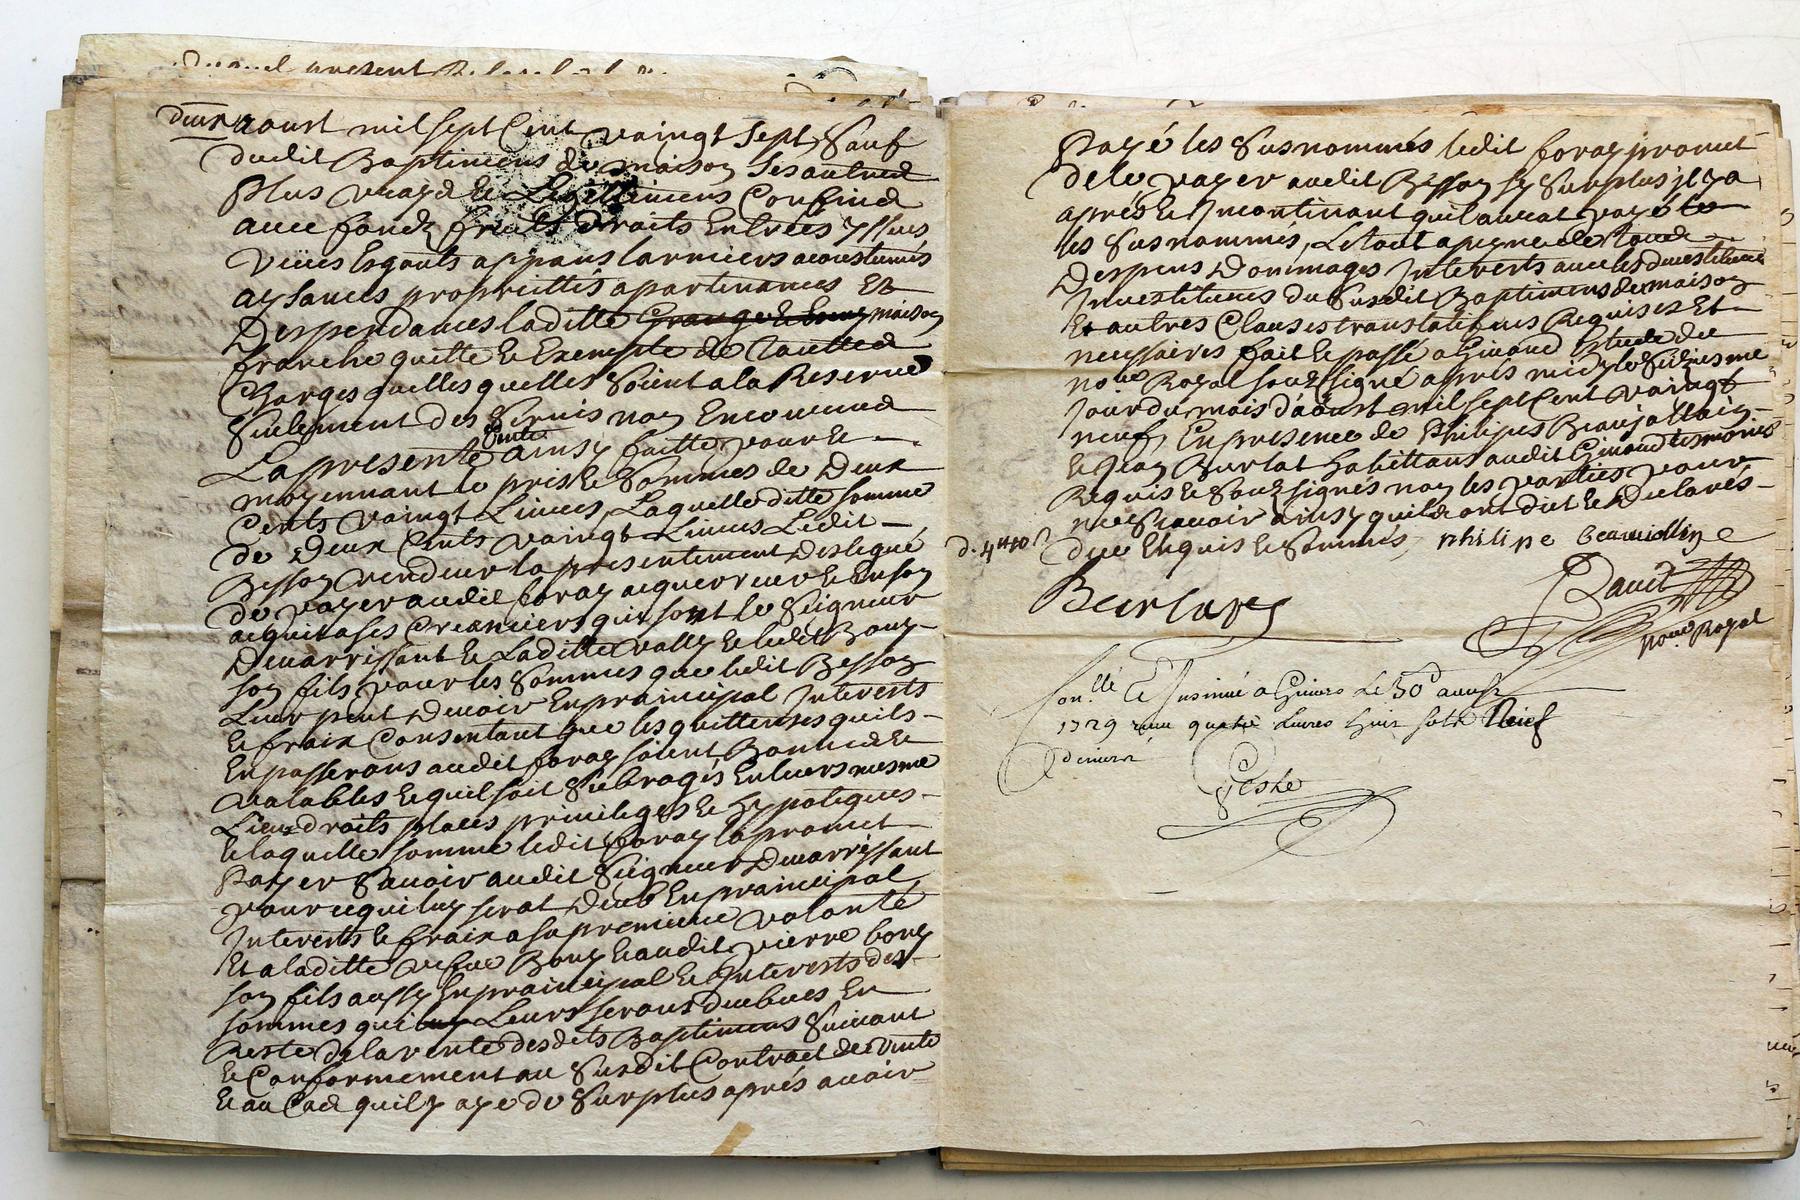 present
deux aoust mil sept Cent vaingt sept Sauf
dudit Baptiment de maison Ses autres
Plus vrayd et Legittimens Confins
avec fondz fruits droits Entrées yssues
Vüues Esgouts appans larmiers acoustumés
aysances propriettés apartenances Et
Despendances laditte maison
franche quitte Et Exempte de Touttes
Charges quelles quelles Soient a la Reserve
Seulement des Servis non Encourus
La presente vente ainsy faitte pour et
moyennant le pris Et Somme de Deux
Cents vaingt Livres Laquelle ditte somme
de Deux Cents vaingt Livres Ledit
Besson vendeur la presentement Deslegué
de payer audit foray acquerreur Et En son
acquit a ses Creanciers qui sont le Seigneur
Demarrissant Et Laditte vally Et ledit Bony
son fils pour les Sommes que ledit Besson
Leur peut Devoir En praincipal Interests
Et fraix Consentant que les quittences quils
En passerons audit foray soient Bonnes Et
valables Et quil soit Subrogés En leurs mesme
Lieux droits places privileges Et Hypoteques
Et laquelle somme ledit foray la promet
Payer Savoir audit Seigneur Demarrissant
pour ce qui luy serat Deub En praincipal
Interests Et fraix a sa premiere volonté
Et a laditte vefve Bony Et audit pierre bony
son fils aussy En praincipal Et Interests des
sommes qui Leurs serons deubues En
Reste de la vente desdits Baptimens Suivant
Et Conformement au Susdit Contract de vente
Et au Cas quil y aye de Surplus aprés avoir
Payé les Susnommés ledit foray promet
de le payer audit Besson sy Surplus jl y a
aprés Et Incontinant quil aurat payé
les Susnommés, Le tout a peyne de Tous
Despens Dommages Interests avec les
Investitures du Susdit Baptimens de maison
Et autres Clauses translatifves Requises Et
necessaires fait Et passé a Givord Estude du
nore Royal souz signé aprés midy le Seizieme
Jour du mois d'aoust mil sept Cent vaingt
neuf, En presence de Philipes Beaujollain
Et Jean Burlat Habittans audit Givord tesmoins
Requis Et Souz signés non les parties pour
ne Scavoir ainsy quils ont dit Et Declarés
due Enquis Et Sommés, philipe beauiollin
d. 4tt 10s
Burlapt
David
nore Royal
Con.llé Et Insinué a Givors Le 30e aoust
1729 receu quatre Livres huit sols Neuf
deniers
Geste